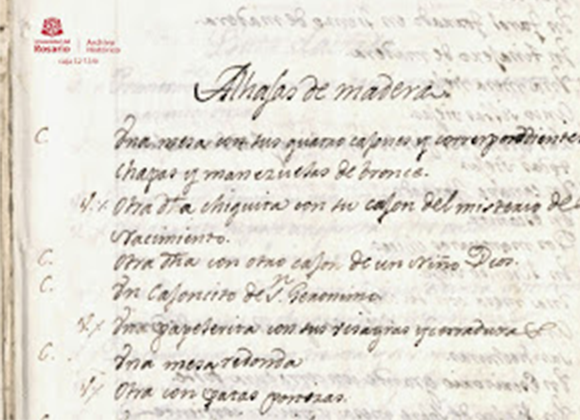 Universidad del
Rosario
Archivo
Histórico
caja 12-136
Alhajas de madera.
C. Una mesa con sus quatro cajones y correspondientes
chapas y manezuelas de bronce.
V. Otra dha chiquita con su cajon del misterio del
Nacimiento.
C. Otra dha con otro cajon de un Niño Dios.
C. Un Cajoncito de Sn. Geronimo
V. Una papelerita con sus visagras y cerradura
C. Una mesa redonda
V. Otra con patas